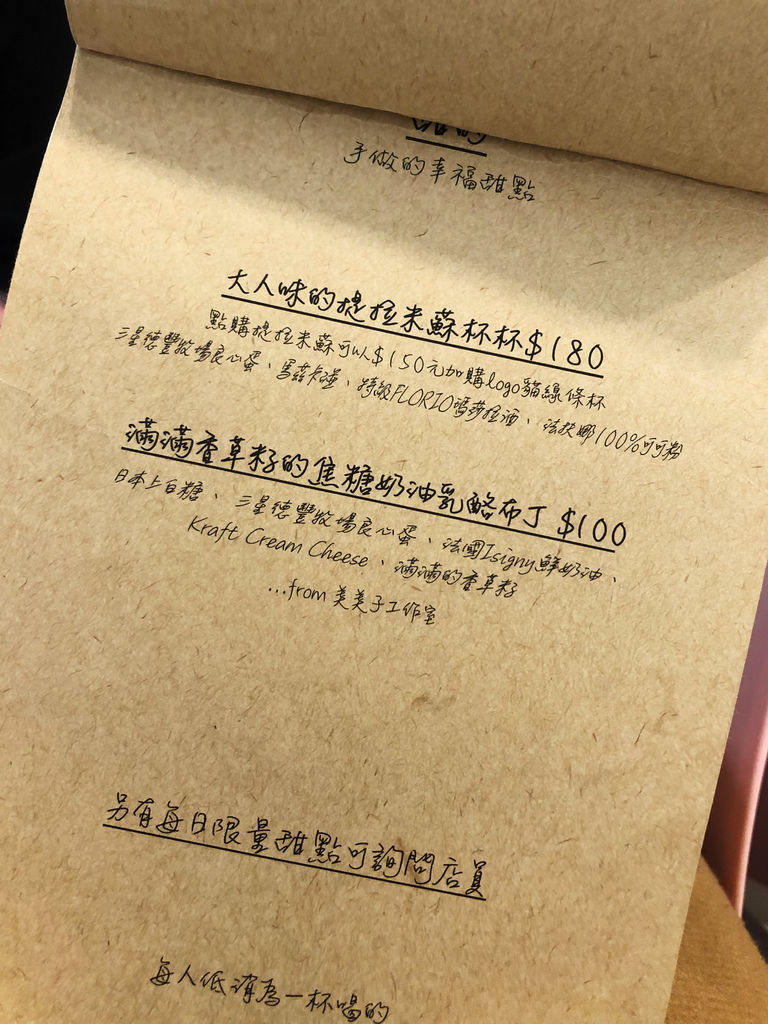 手做的幸福甜點
大人味的提拉米蘇杯杯$180
點購提拉米蘇可以$150元加購logo貓線條杯
三星德豐牧場良心蛋、馬茲卡碰、特級FLORIO瑪莎拉酒、法芙娜100%可可粉
滿滿香草籽的焦糖奶油乳酪布丁 $100
日本上白糖、三星德豐牧場良心蛋、法國Isigny鮮奶油、
Kraft Cream Cheese、滿滿的香草籽
...from 美美子工作室
另有每日限量甜點可詢問店員
每人低消為一杯喝的